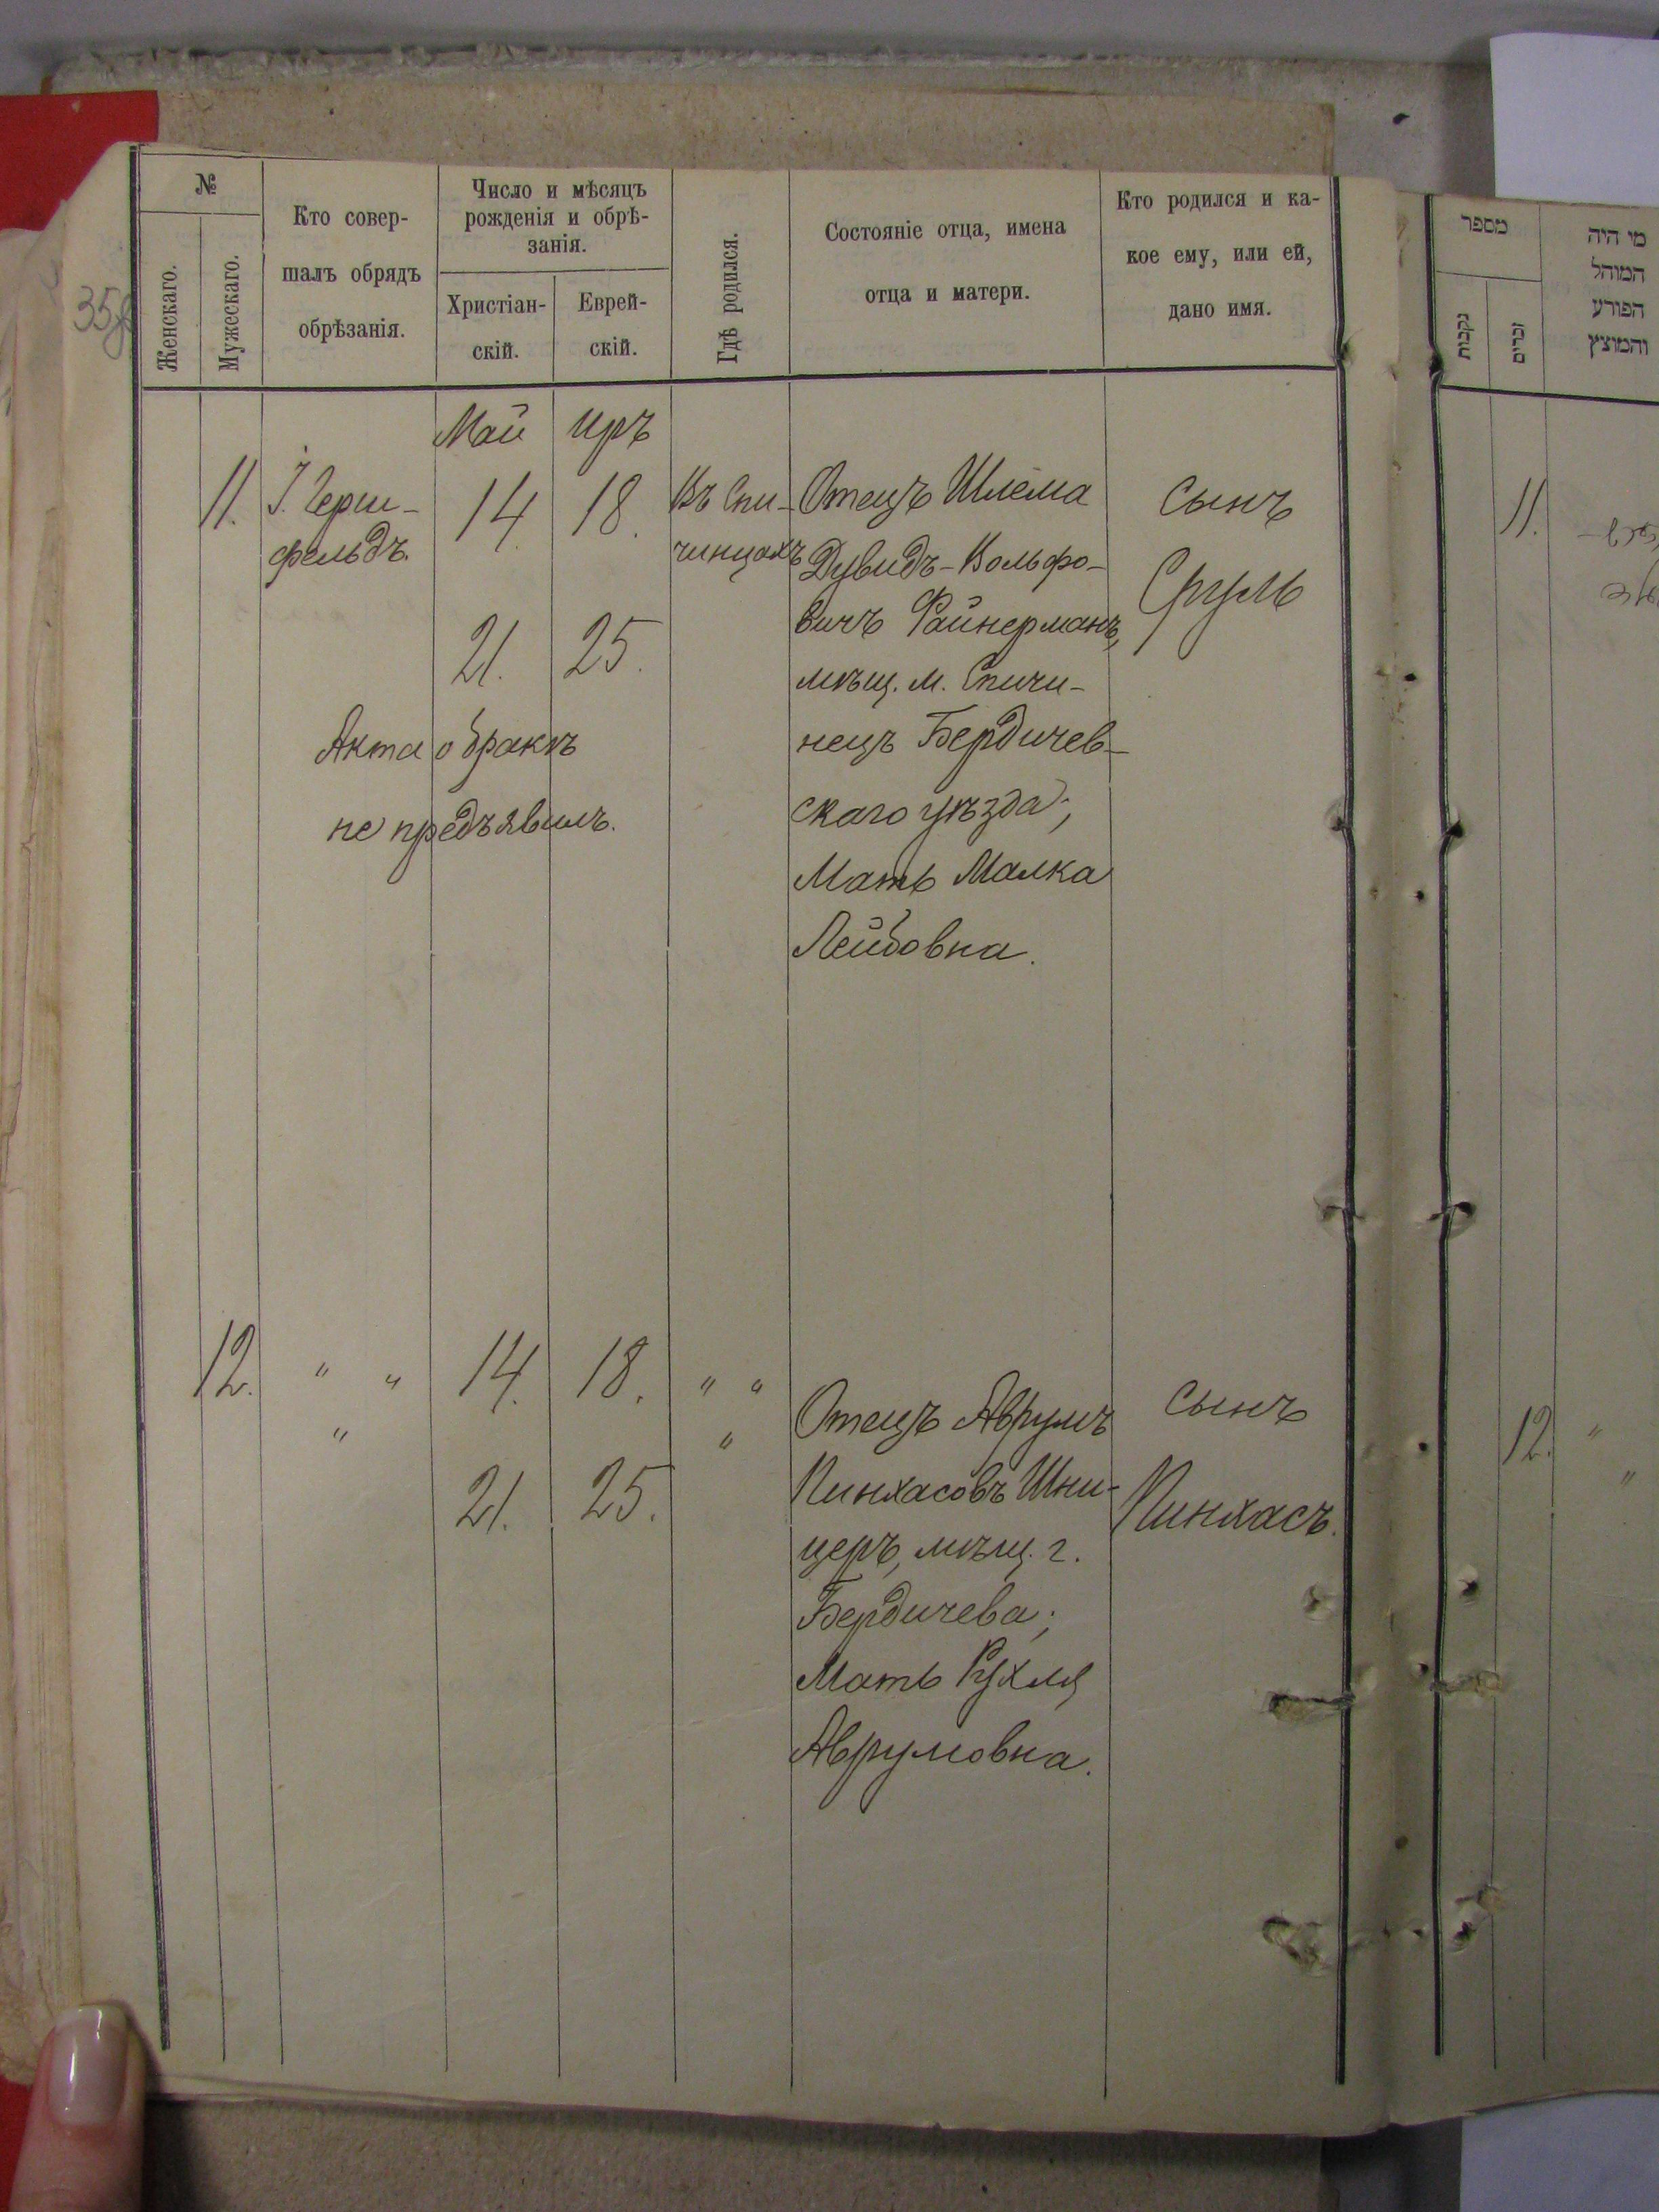 №
Женскаго.
Мужескаго.
Кто совер-
шалъ обрядъ
обрѣзанія.
Число и мѣсяцъ
рожденія и обрѣ-
занія.
Христіан-
скій.
Еврей-
скій.
Гдѣ родился.
Состояніе отца, имена
отца и матери.
Кто родился и ка-
кое ему, или ей,
дано имя.
Май
Иръ
11.
І. Герш-
фельдъ.
14.
18.
21.
25.
Въ Спи-
чинцахъ
Отецъ Шлема
Дувидъ-Вольфо-
вичъ Файнерманъ,
мѣщ. м. Спичи-
нецъ Бердичев-
скаго уѣзда;
Мать Малка
Лейбовна.
сынъ
Сруль
Акта о бракѣ
не предъявилъ.
12.
" "
"
14.
18.
21.
25.
" "
"
Отецъ Аврумъ
Пинхасовъ Шни-
церъ, мѣщ. г.
Бердичева;
Мать Рухля
Аврумовна.
сынъ
Пинхасъ.
מספר
נקבות
זכרים
מי היה
המוהל
הפורע
והמוצץ
11.
12.
"
"